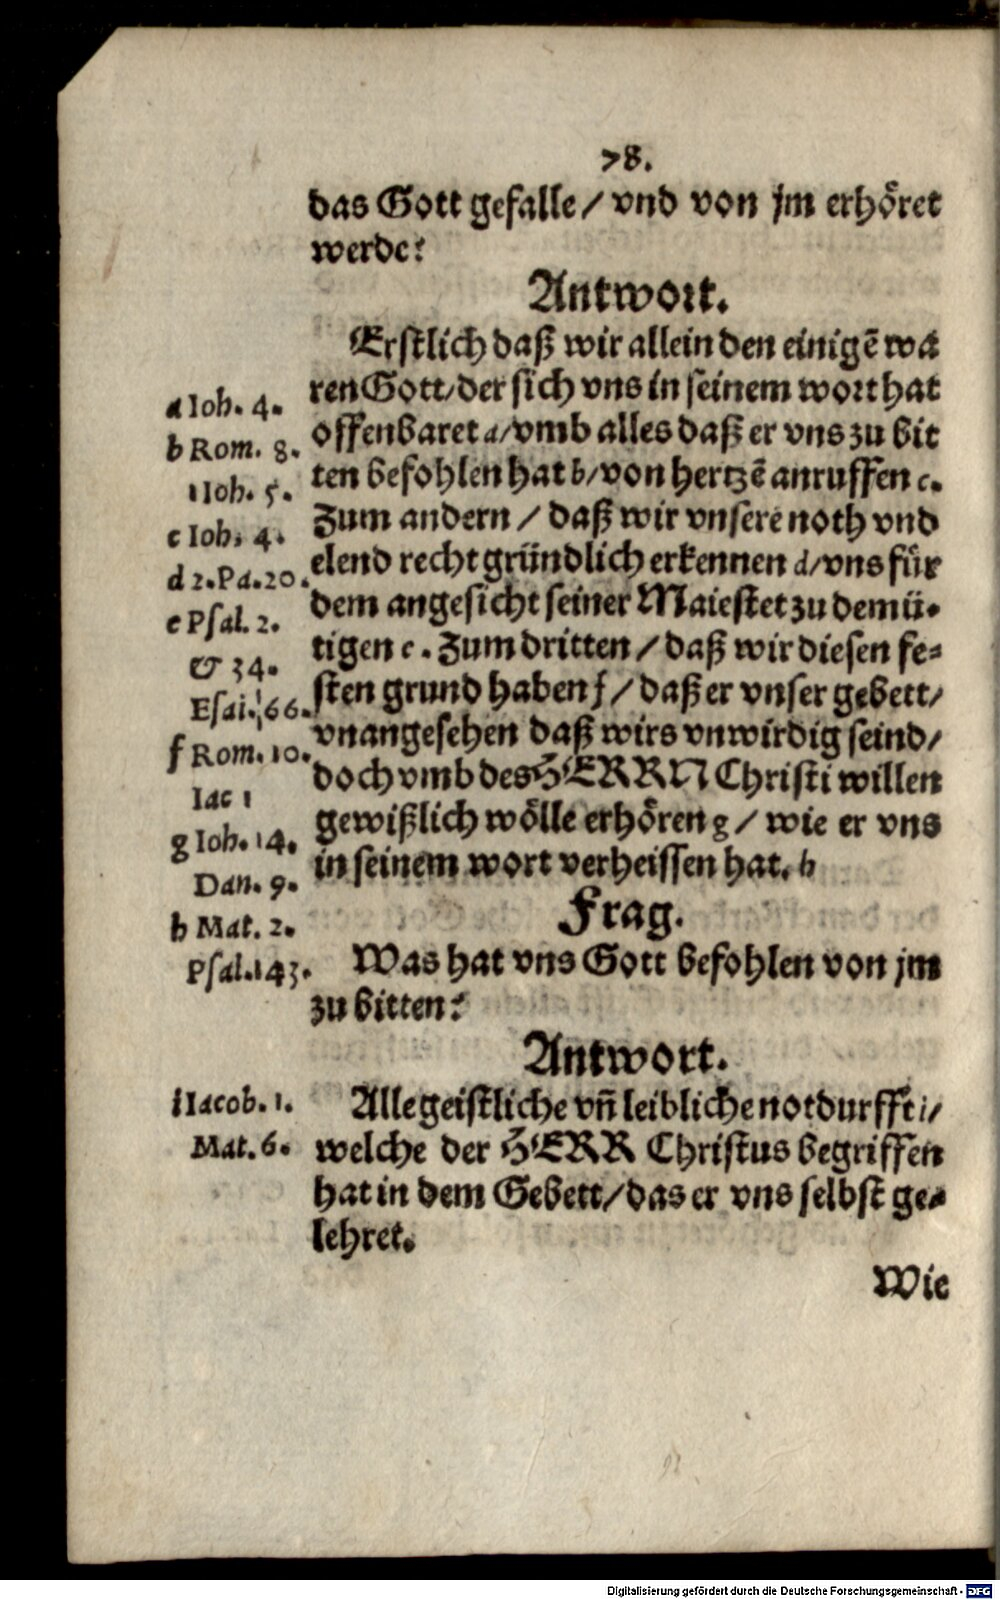 78.
das Gott gefalle / vnd von jm erhöret
werde?
Antwort.
Erstlich daß wir allein den einigē wa
ren Gott / der sich vns in seinem wort hat
offenbaret a / vmb alles daß er vns zu bit
ten befohlen hat b / von hertzē anruffen c.
Zum andern / daß wir vnsere noth vnd
elend recht gründlich erkennen d / vns für
dem angesicht seiner Maiestet zu demü-
tigen e. Zum dritten / daß wir diesen fe-
sten grund haben f / daß er vnser gebett /
vnangesehen daß wirs vnwirdig seind /
doch vmb des HERRN Christi willen
gewißlich wölle erhören g / wie er vns
in seinem wort verheissen hat. h
a Ioh. 4.
b Rom. 8.
1 Ioh. 5.
c Ioh. 4.
d 2. Pa. 20.
e Psal. 2.
& 34.
Esai. 66.
f Rom. 10.
Iac 1
g Ioh. 14.
Dan. 9.
h Mat. 2.
Psal. 143.
Frag.
Was hat vns Gott befohlen von jm
zu bitten?
Antwort.
Alle geistliche vñ leibliche notdurfft i /
welche der HERR Christus begriffen
hat in dem Gebett / das er vns selbst ge-
lehret.
i Iacob. 1.
Mat. 6.
Wie
Digitalisierung gefördert durch die Deutsche Forschungsgemeinschaft - DFG